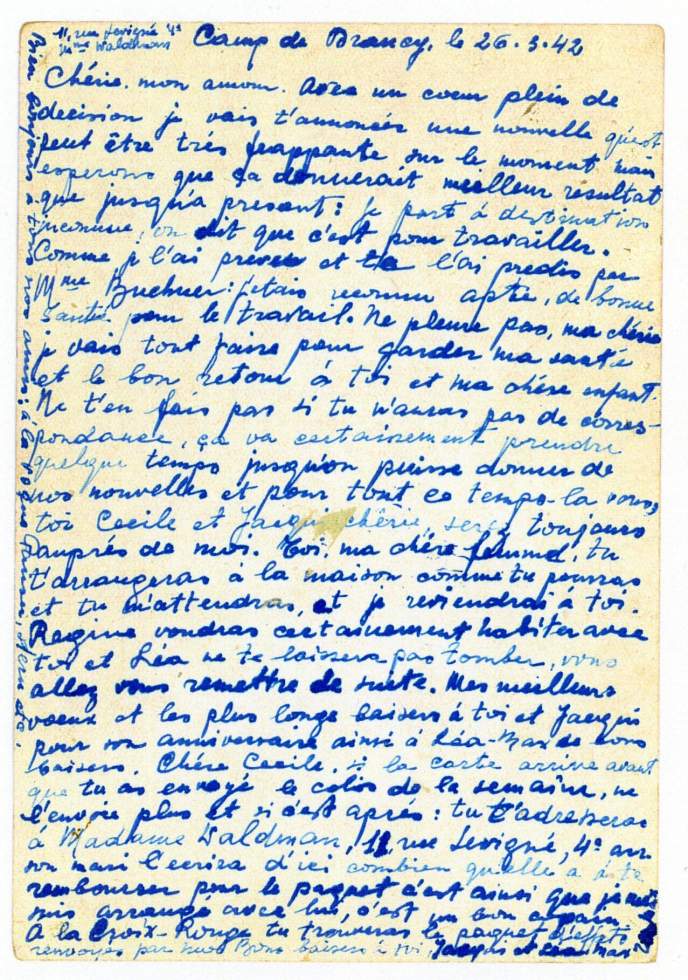 11, rue Sevigné 4e
Mme Waldman
Camp de Drancy, le 26.3.42
Chérie. mon amour. Avec un cœur plein de
decision je vais t'annoncer une nouvelle qu'est
peut être trés frappante sur le moment mais
esperons que ça donnerait meilleur resultat
que jusqu'a present: je part à destination
inconnue, on dit que c'est pour travailler.
Comme je l'ai prevu et te l'ai predis par
Mme Buchner: j'etais reconnu apte, de bonne
santé pour le travail. Ne pleure pas, ma chérie
je vais tout faire pour garder ma santé
et le bon retour à toi et ma chére enfant.
Ne t'en fais pas si tu n'auras pas de corres-
pondance, ça va certainement prendre
quelque temps jusqu'on puisse donner de
nos nouvelles et pour tout ce temps-la vous,
toi Cecile et Jacquis chérie, serez toujours
auprés de moi. Toi, ma chére femme, tu
t'arrangeras à la maison comme tu pourras
et tu m'attendras, et je reviendrai à toi.
Regine voudras certainement habiter avec
toi et Léa ne te laissera pas tomber, vous
allez vous remettre de suite. Mes meilleurs
voeux et les plus longs baisers à toi et Jacquis
pour son anniversaire ainsi à Léa-Max de bons
baisers. Chére Cecile, si la carte arrive avant
que tu as envoyé le colis de la semaine, ne
l'envoie plus et si c'est aprés: tu t'adresseras
à Madame Waldman, 11 rue Sevigné, 4e arr.
son mari l'ecrira d'ici combien qu'elle a à te
rembourser pour le paquet c'est ainsi que je me
suis arrangé avec lui, c'est un bon copain
A la Croix-Rouge tu trouveras le paquet d'effets
renvoyés par moi Bons baisers à toi, Jacquis et Léa Max
Bien bonjours à tous nos amis: à la